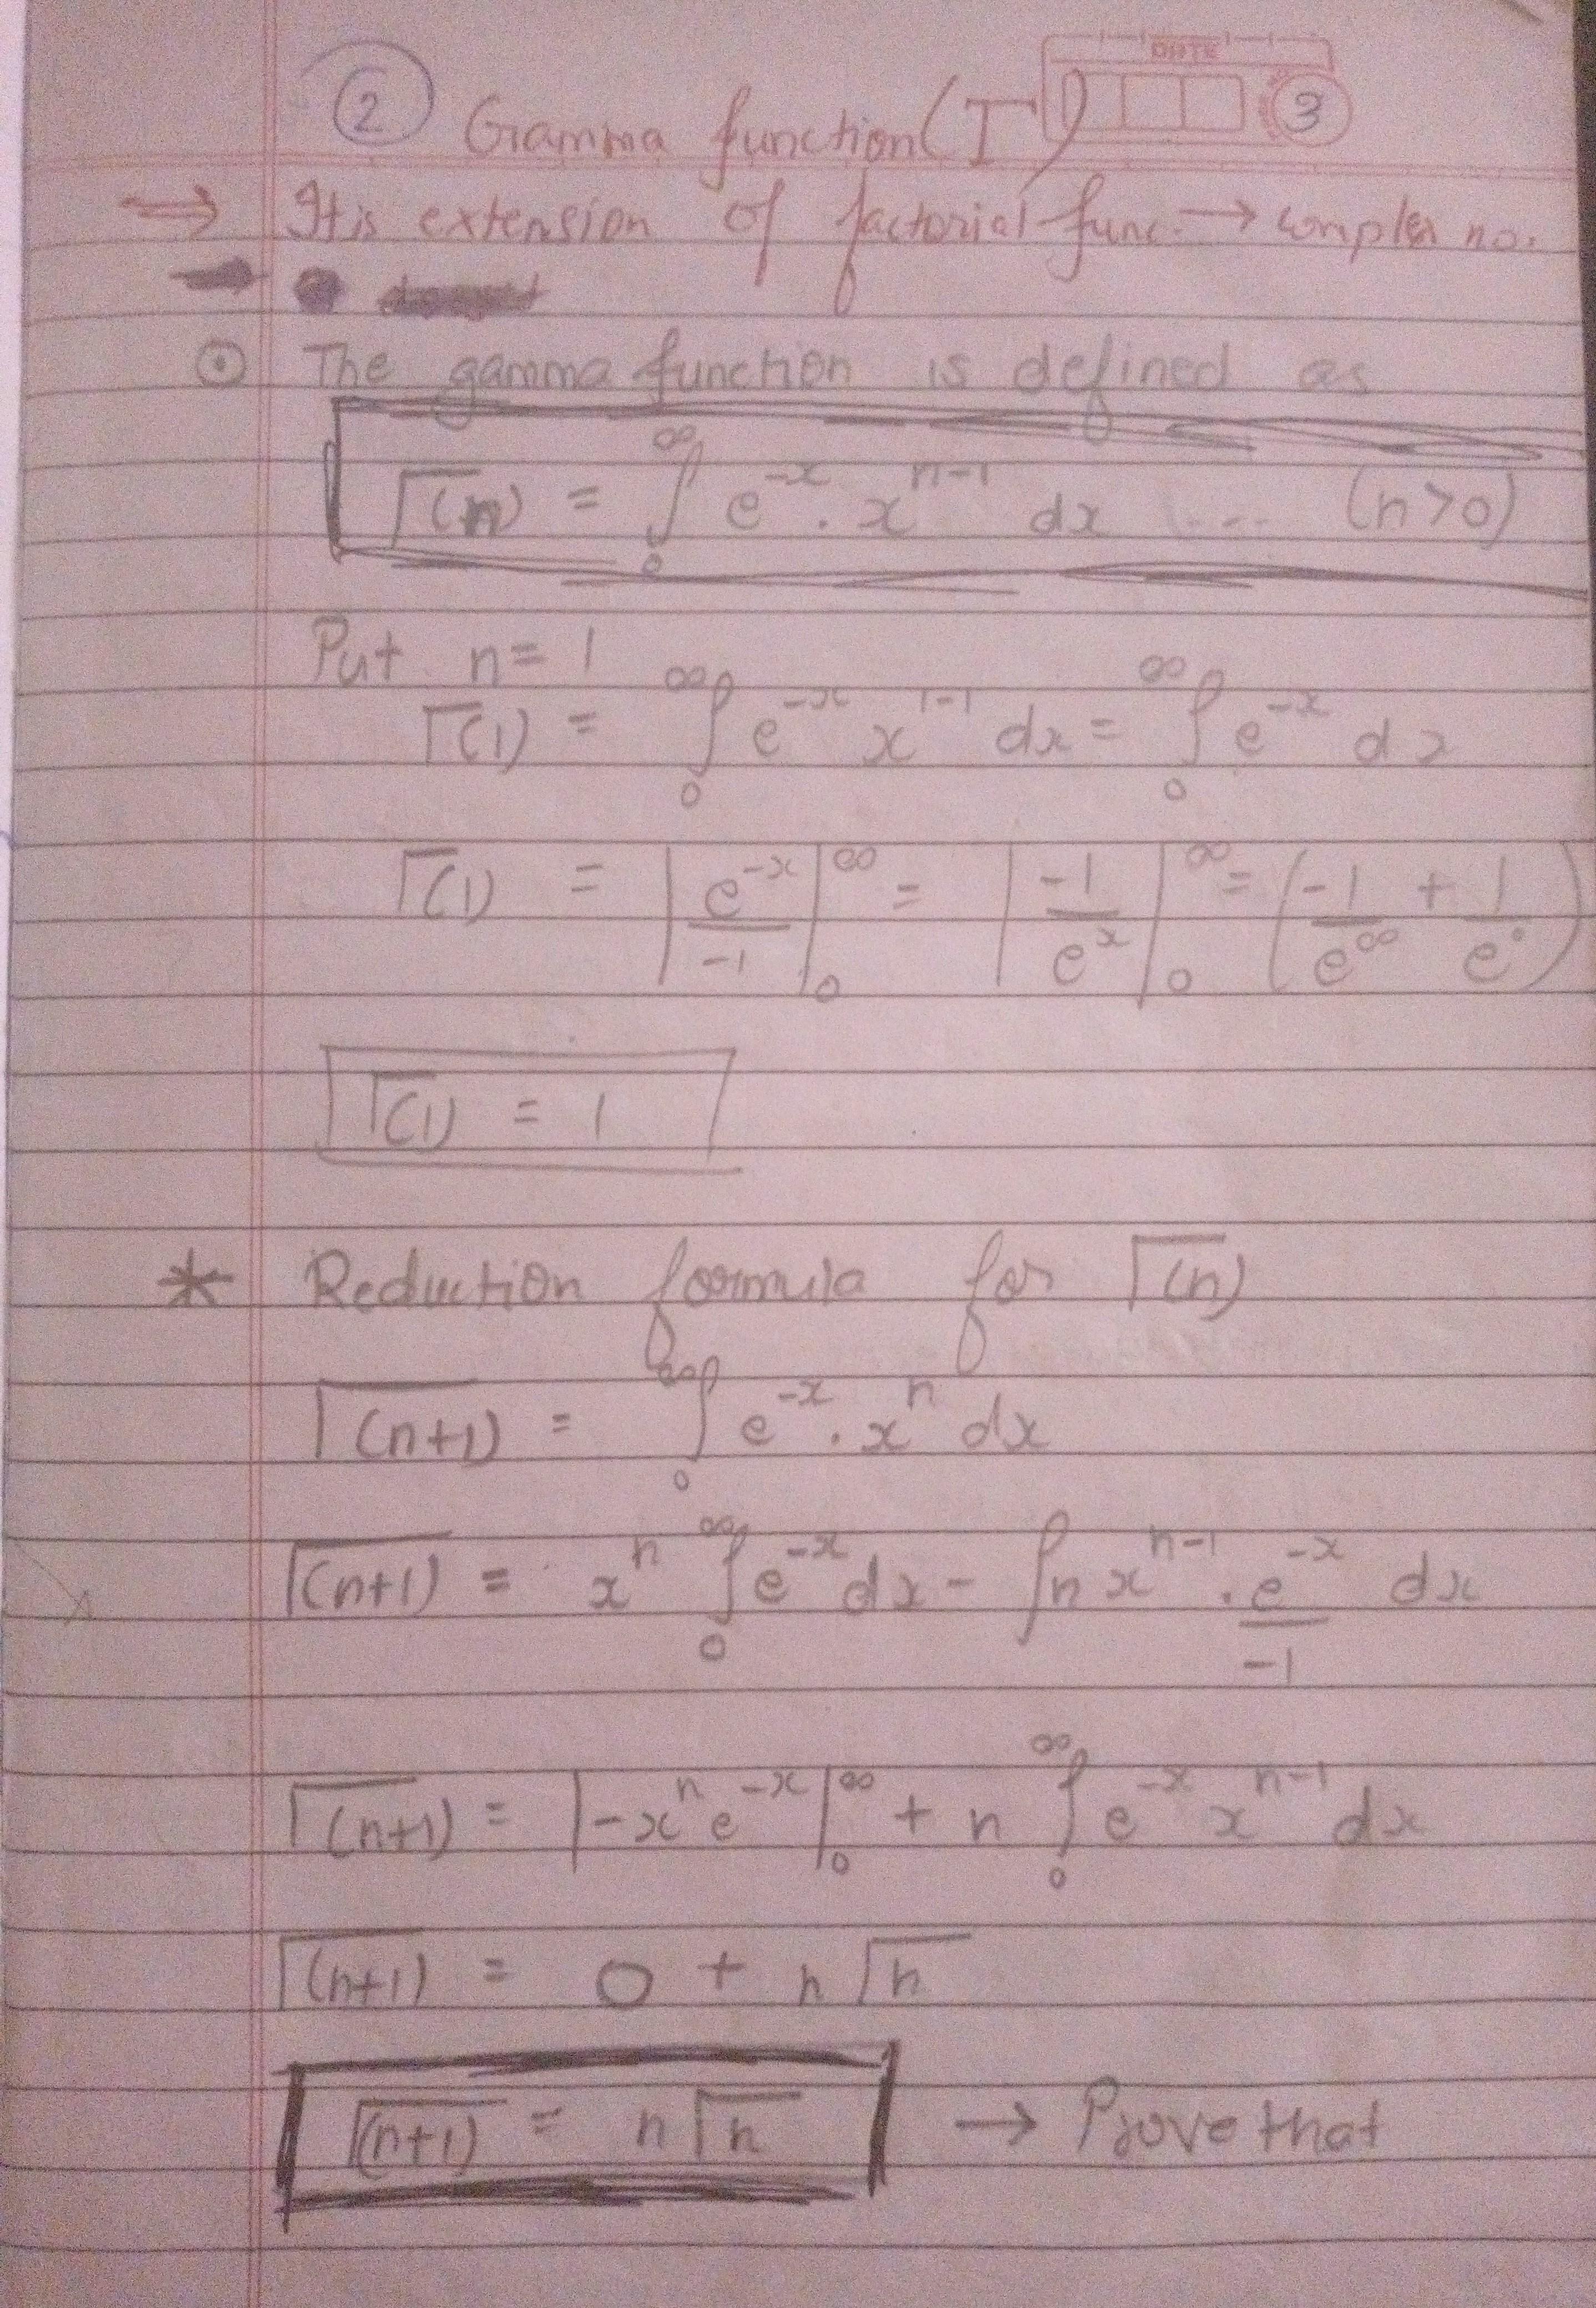 ② Gamma function (Γ)
DATE
3
⇒ It is extension of factorial func. → complex no.
⊙ The gamma function is defined as
Γ(n) = ∫₀^∞ e^-x . x^n-1 dx .... (n>0)
Put n = 1
Γ(1) = ∫₀^∞ e^-x x^1-1 dx = ∫₀^∞ e^-x dx
Γ(1) = |e^-x/-1|₀^∞ = |-1/e^x|₀^∞ = (-1/e^∞ + 1/e^0)
Γ(1) = 1
* Reduction formula for Γ(n)
Γ(n+1) = ∫₀^∞ e^-x . x^n dx
Γ(n+1) = x^n ∫₀^∞ e^-x dx - ∫ n x^n-1 . e^-x/-1 dx
Γ(n+1) = |-x^n e^-x|₀^∞ + n ∫₀^∞ e^-x x^n-1 dx
Γ(n+1) = 0 + n Γn
Γ(n+1) = n Γn → Prove that